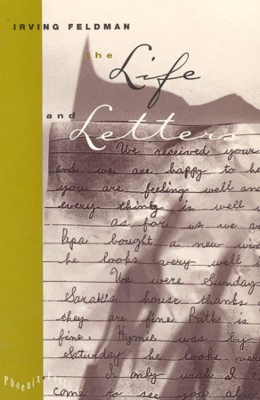 IRVING FELDMAN
the
Life
and
Letters
We received your
and we are happy to he
you are feeling well and
every thing is well
as for us we a
Papa bought a new win
he looks very well h
We were Sunday
Sarah's house thanks
they are fine Ruth is
fine, Hymie was by
Saturday he looks wer
I only wish I c
come to see you alo
Phoenix Poets